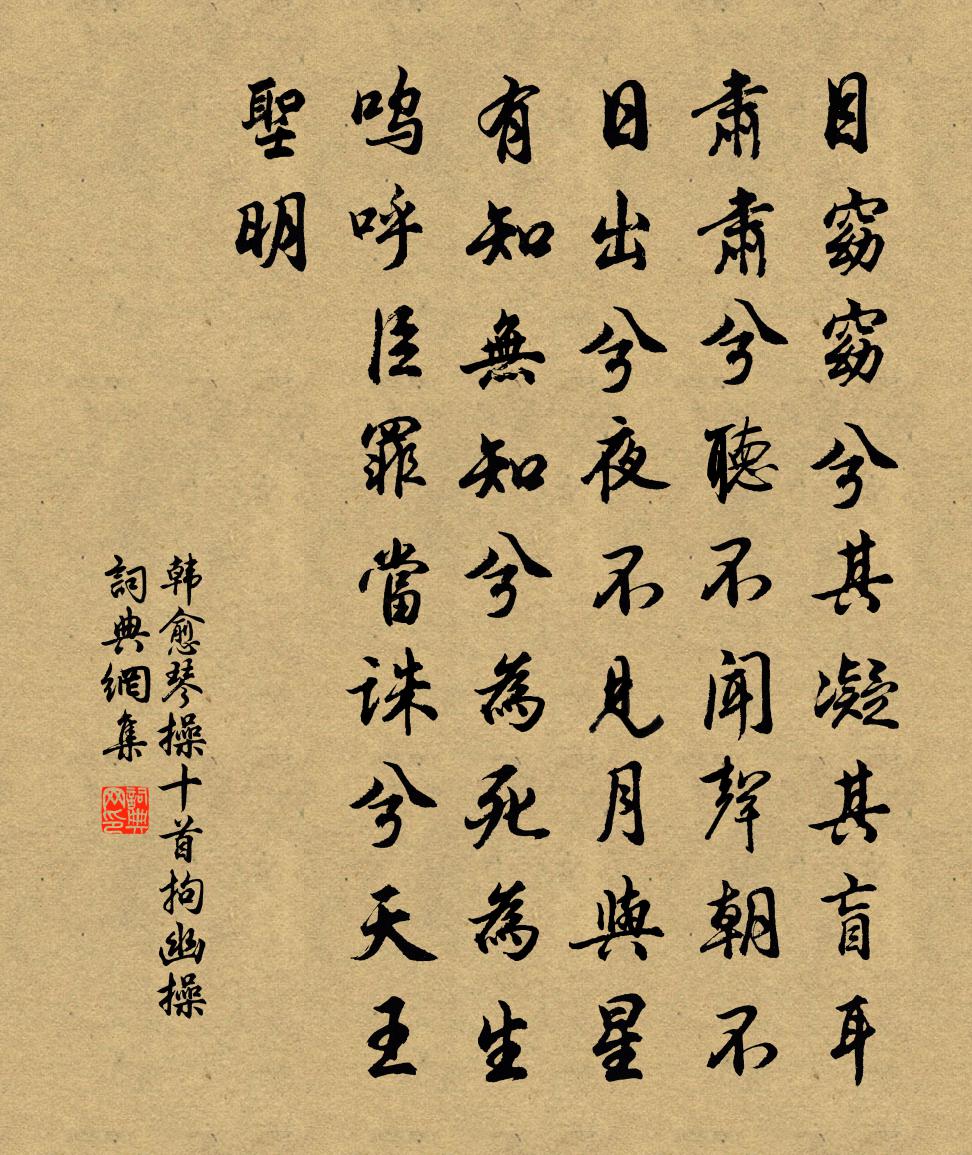 目窈窈兮其凝其盲耳
肅肅兮聽不聞聲朝不
日出兮夜不見月與星
有知無知兮為死為生
嗚呼臣罪當誅兮天王
聖明
韩愈琴操十首拘幽操
詞典網集
詞典網印